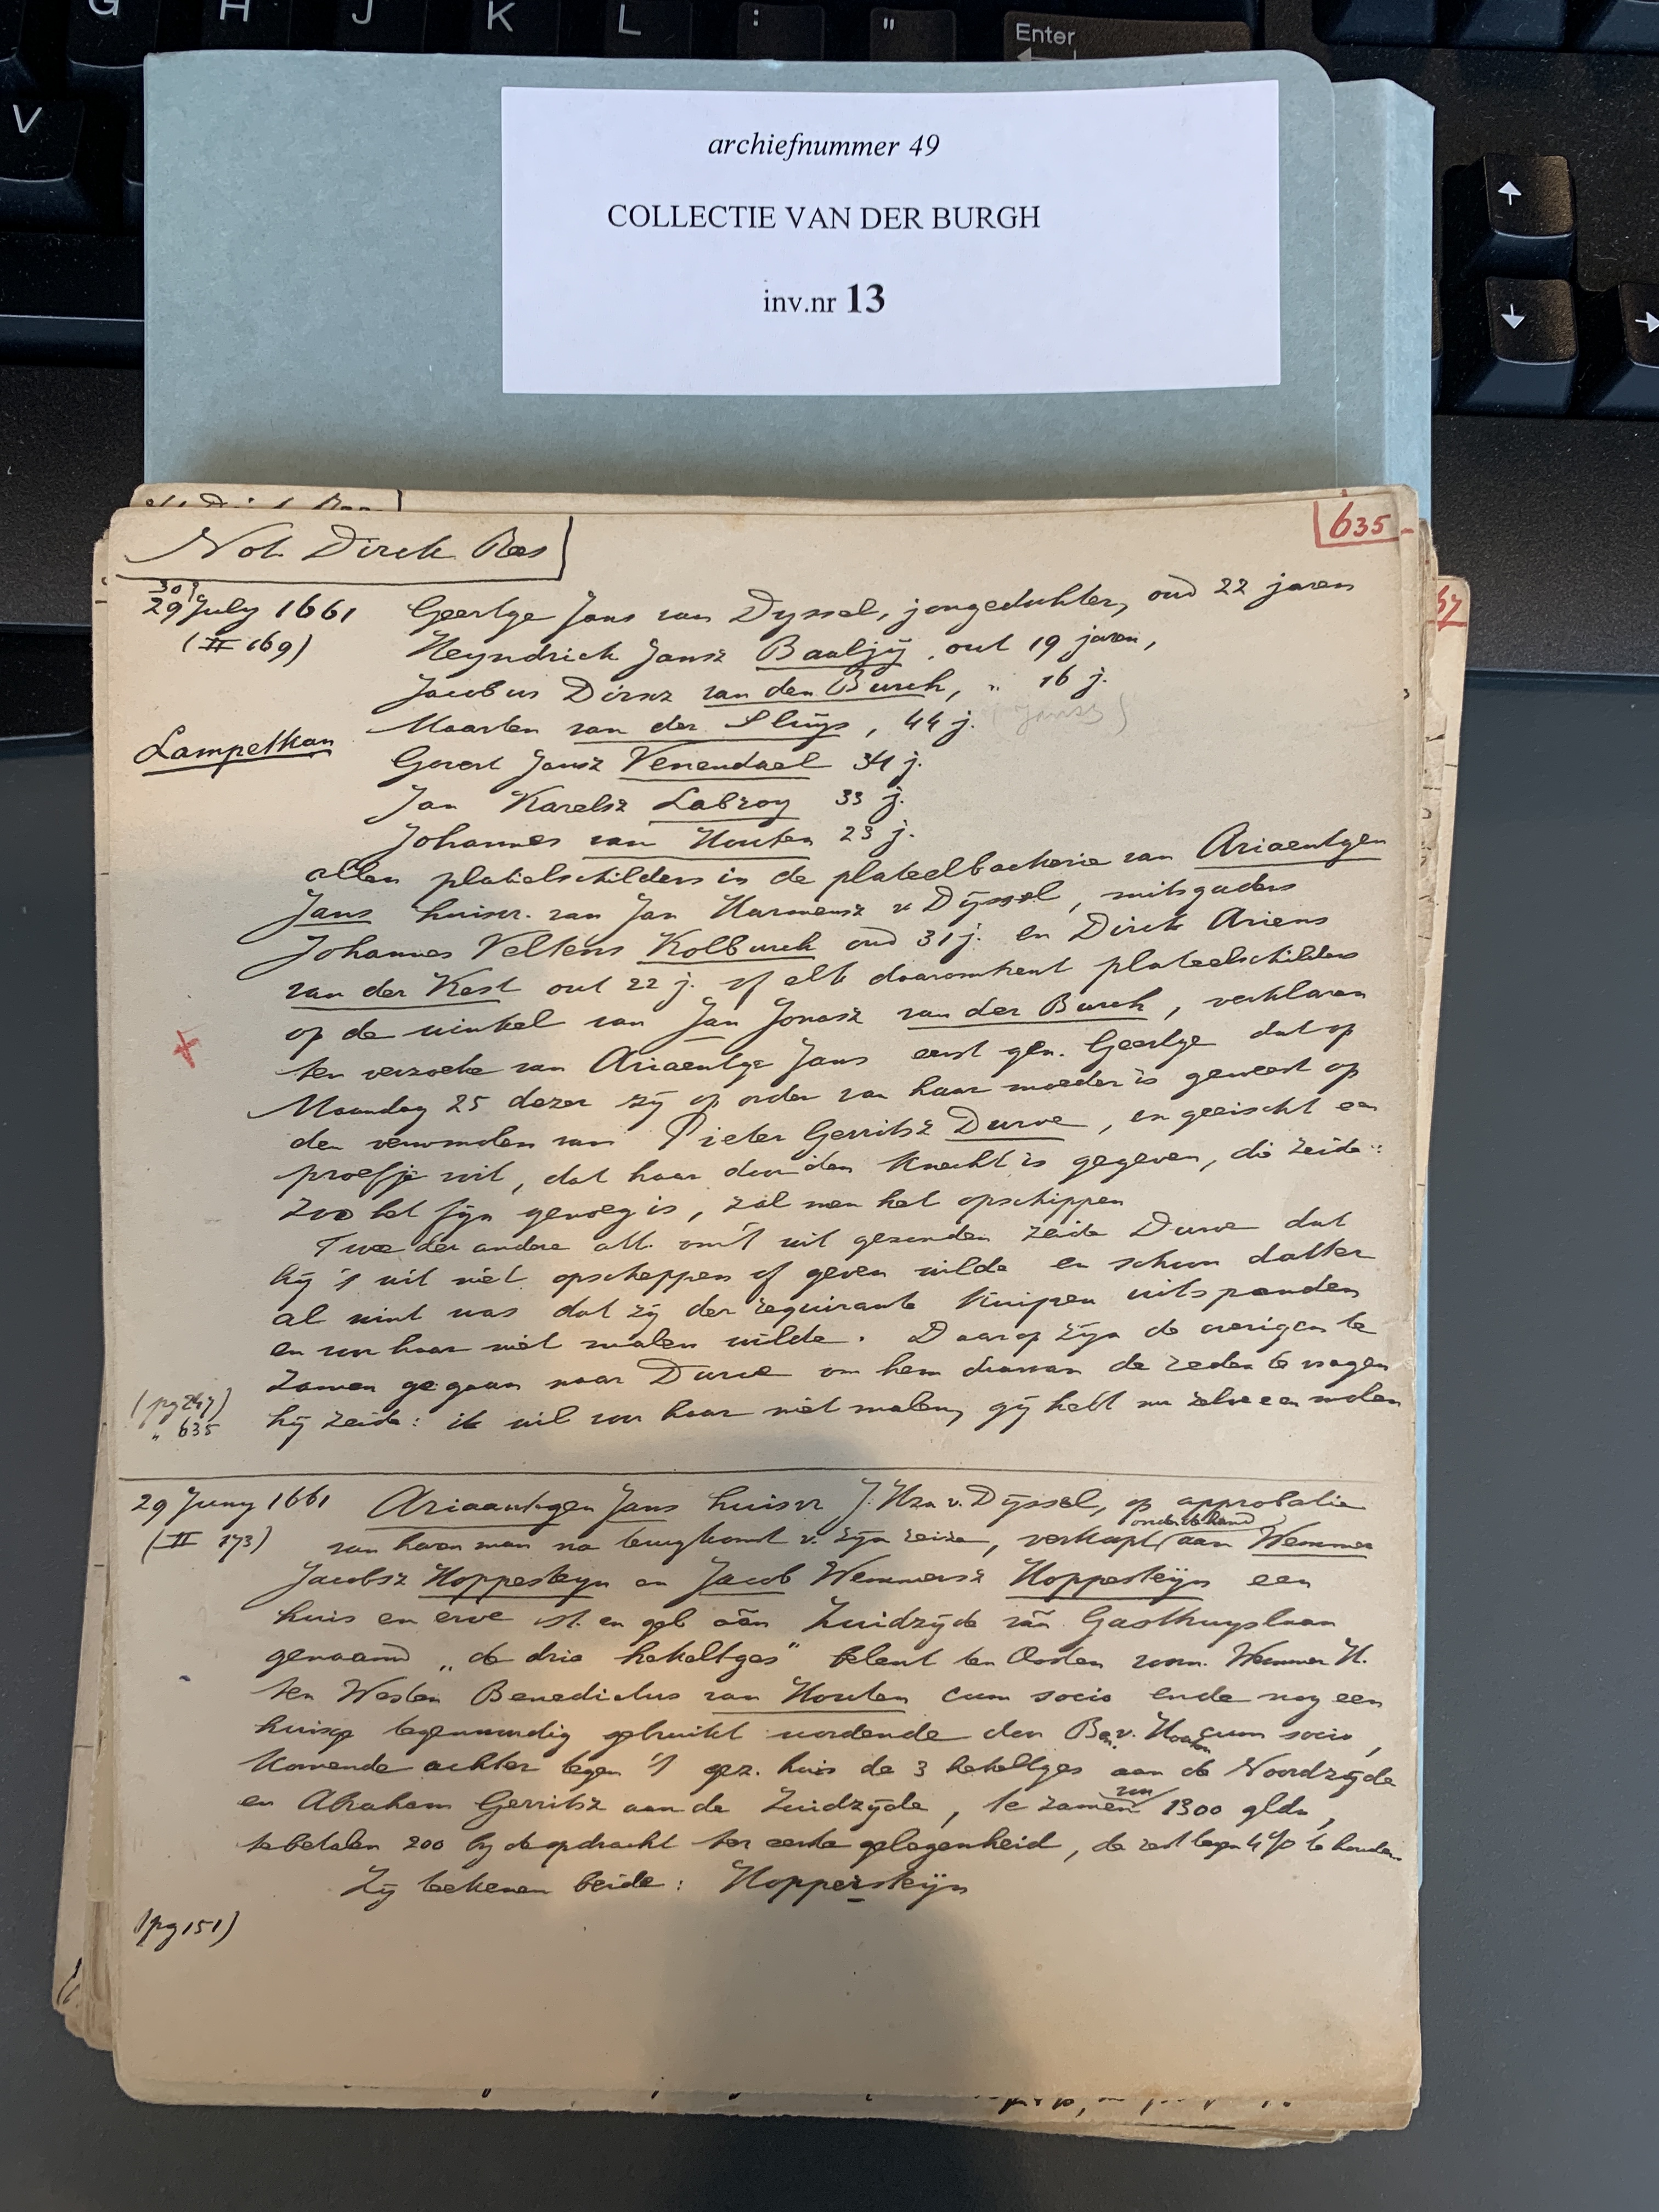 G H J K L : " Enter
V
archiefnummer 49
COLLECTIE VAN DER BURGH
inv.nr 13
635
Not. Dirck Rees
30?
29 July 1661 Geertge Jans van Dyssel, jongedochter, oud 22 jaren
(II 169) Heyndrick Jansz Baaljÿ, out 19 jaren,
Jacobus Dirxz van den Burch, " 16 j.
Maarten van der Sluÿs, 44 j. (Jansz)
Lampetkan
Govert Jansz Venendael 34 j.
Jan Karelsz Labroy 33 j.
Johannes van Houten 23 j.
allen platielschilders in de plateelbackerie van Ariaentgen
Jans huisvr. van Jan Harmensz v Dÿssel, mitsgaders
Johannes Veltens Kolburch oud 31 j. en Dirck Ariens
van der Kest out 22 j. of elk daaromtrent plateelschilders
op de winkel van Jan Jonasz van der Burch, verklaren
ten verzoeke van Ariaentge Jans eerst gen. Geertge dat op
Maandag 25 dezer zÿ op order van haar moeder is geweest op
den verwmolen van Pieter Gerritsz Durve, en geeischt een
proefje wit, dat haar door den knecht is gegeven, die zeide:
Zoo het fijn genoeg is, zal men het opschippen
Twee der andere att. om 't wit gezonden zeide Durve dat
hÿ 't wit niet opscheppen of geven wilde en schoon datter
al wint was dat zÿ der requirante kuipen uitspanden
en voor haar niet malen wilde. Daarop zÿn de overigen te
zamen gegaan naar Durve om hem daarvan de reden te vragen
(pg 247)
" 635
hÿ zeide: ik wil voor haar niet malen, gÿ hebt nu zelve een molen
29 Juny 1661 Ariaantgen Jans huisvr J. Hzn v. Dÿssel, op approbatie
(II 173) van haren man na terugkomst v. zÿn reize, verkoopt onderdehand aan Wemmer
Jacobsz Hoppesteyn en Jacob Wemmersz Hoppesteÿn een
huis en erve st. en gel. aān Zuidzÿde vān Gasthuyslaan
genaamd „de drie hekeltges" belent ten Oosten voorn. Wemmer H.
ten Westen Benedictus van Houten cum socio ende nog een
huisge tegenwoordig gebruikt wordende door Ben. v. Houten cum socio,
komende achter tegen 't gez. huis de 3 hekeltges aan de Noordzÿde
en Abraham Gerritsz aan de Zuidzÿde, te zamen voor 1300 gldn,
te betalen 200 bÿ de opdracht ter eerste gelegenheid, de rest tegen 4% te houden.
Zÿ teekenen beide: Hoppersteÿn
(pg 151)